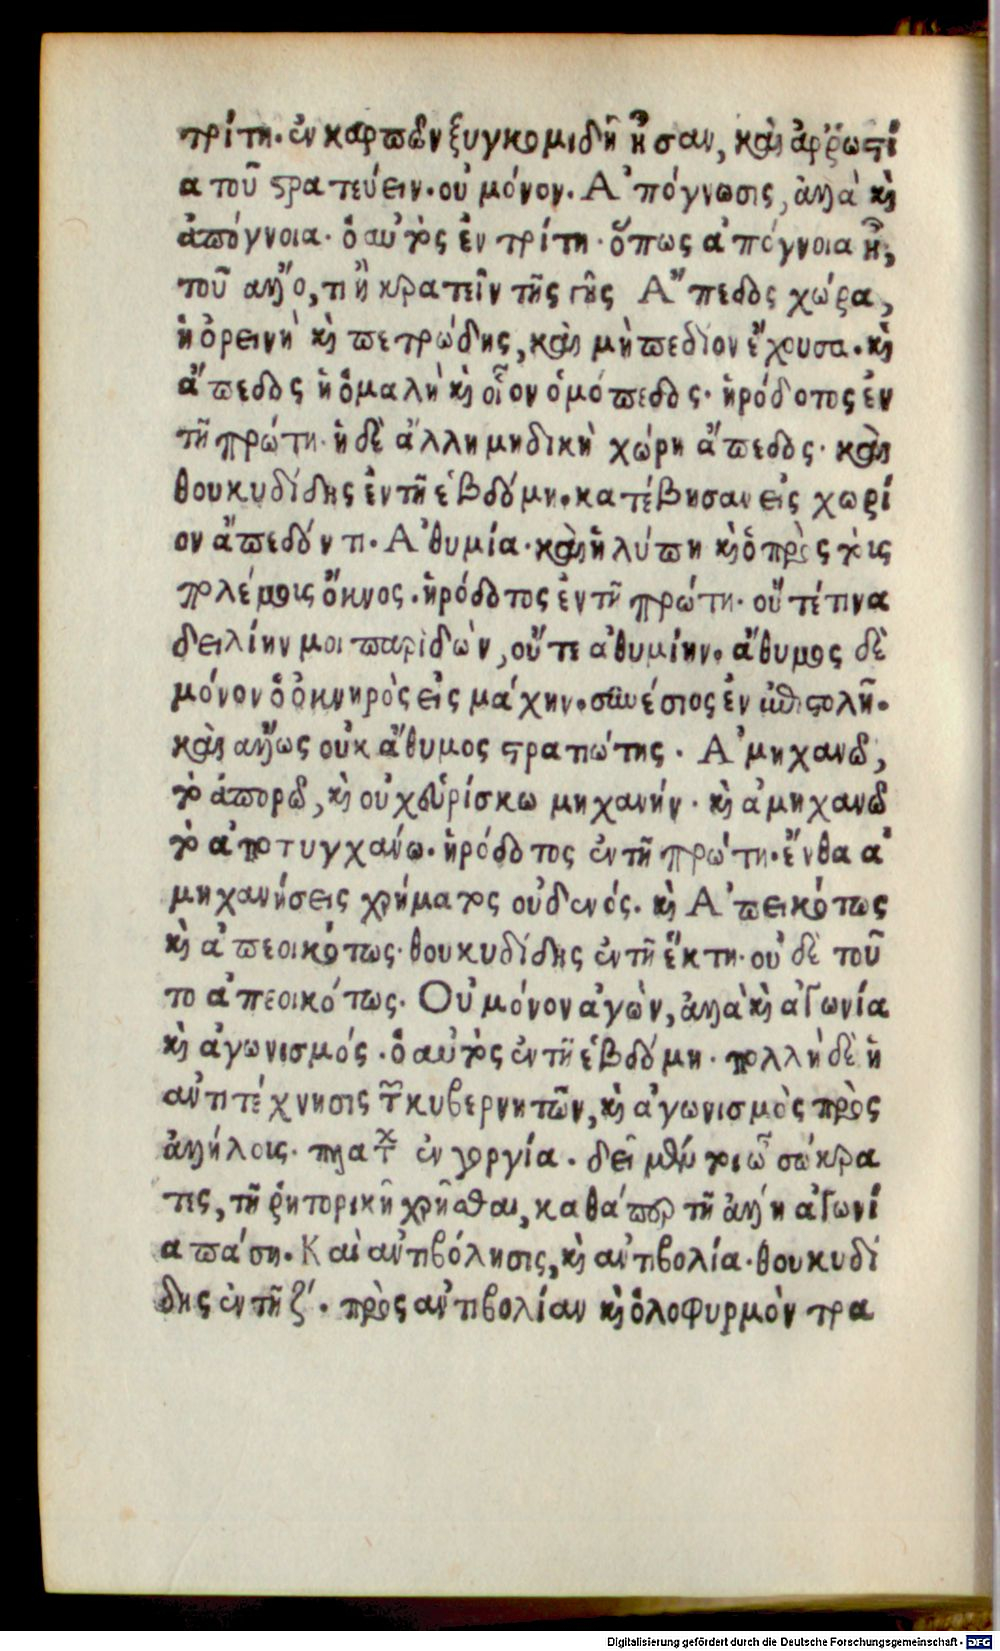 τρίτη. ἐν καρπῶν ξυγκομιδῆ ἦσαν, καὶ ἀῤῥωστί
α τοῦ στρατεύειν. οὐ μόνον. Ἀπόγνωσις, ἀλλὰ καὶ
ἀπόγνοια. ὁ αὐτὸς ἐν τρίτη. ὅπως ἀπόγνοια ἦ,
τοῦ ἄλλο, τι ἢ κρατεῖν τῆς γῆς Ἄπεδος χώρα,
ἡ ὀρεινὴ καὶ πετρώδης, καὶ μὴ πεδίον ἔχουσα. καὶ
ἄπεδος ἡ ὁμαλὴ καὶ οἷον ὁμόπεδος. ἡρόδοτος ἐν
τῆ πρώτη. ἡ δὲ ἄλλη μηδικὴ χώρη ἄπεδος. καὶ
θουκυδίδης ἐν τῆ ἑβδόμη. κατέβησαν εἰς χωρί
ον ἄπεδόν τι. Ἀθυμία. καὶ ἡ λύπη καὶ ὁ πρὸς τοὺς
πολέμους ὄκνος. ἡρόδοτος ἐν τῆ πρώτη. οὔτέ τινα
δειλίην μοι παριδὼν, οὔτε ἀθυμίην. ἄθυμος δὲ
μόνον ὁ ὀκνηρὸς εἰς μάχην. συνέσιος ἐν ἐπιστολῆ.
καὶ ἄλλως οὐκ ἄθυμος στρατιώτης. Ἀμηχανῶ,
τὸ ἀπορῶ, καὶ οὐχ εὑρίσκω μηχανήν. καὶ ἀμηχανῶ
τὸ ἀποτυγχάνω. ἡρόδοτος ἐν τῆ πρώτη. ἔνθα ἀ
μηχανήσεις χρήματος οὐδενός. καὶ Ἀπεικότως
καὶ ἀπεοικότως. θουκυδίδης ἐν τῆ ἕκτη. οὐδὲ τοῦ
το ἀπεοικότως. Οὐ μόνον ἀγὼν, ἀλλὰ καὶ ἀγωνία
καὶ ἀγωνισμός. ὁ αὐτὸς ἐν τῆ ἑβδόμη. πολλὴ δὲ ἡ
ἀντιτέχνησις τῶν κυβερνητῶν, καὶ ἀγωνισμὸς πρὸς
ἀλλήλους. πλάτων ἐν γοργία. δεῖ μέντοι ὦ σώκρα
τες, τῆ ῥητορικῆ χρῆσθαι, καθάπερ τῆ ἄλλη ἀγωνί
α πάση. Καὶ ἀντιβόλησις, καὶ ἀντιβολία. θουκυδί
δης ἐν τῆ ζ΄. πρὸς ἀντιβολίαν καὶ ὀλοφυρμὸν τρα
Digitalisierung gefördert durch die Deutsche Forschungsgemeinschaft - DFG